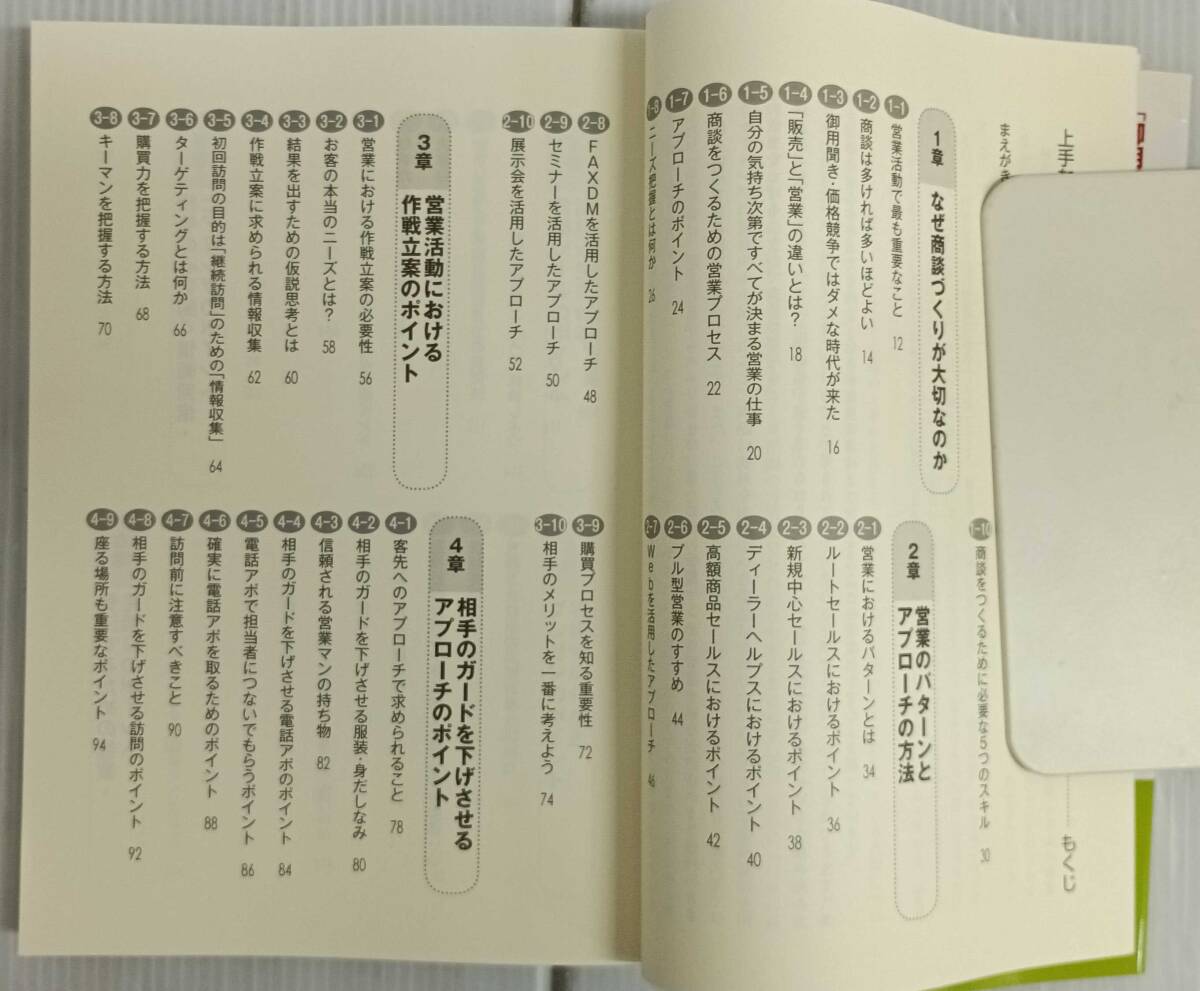 上手な
もくじ
まえがき
1章 なぜ商談づくりが大切なのか
1-1 営業活動で最も重要なこと 12
1-2 商談は多ければ多いほどよい 14
1-3 御用聞き・価格競争ではダメな時代が来た 16
1-4 「販売」と「営業」の違いとは? 18
1-5 自分の気持ち次第ですべてが決まる営業の仕事 20
1-6 商談をつくるための営業プロセス 22
1-7 アプローチのポイント 24
1-8 ニーズ把握とは何か 26
1-10 商談をつくるために必要な5つのスキル 30
2章 営業のパターンと
アプローチの方法
2-1 営業におけるパターンとは 34
2-2 ルートセールスにおけるポイント 36
2-3 新規中心セールスにおけるポイント 38
2-4 ディーラーヘルプスにおけるポイント 40
2-5 高額商品セールスにおけるポイント 42
2-6 プル型営業のすすめ 44
2-7 Webを活用したアプローチ 46
2-8 FAXDMを活用したアプローチ 48
2-9 セミナーを活用したアプローチ 50
2-10 展示会を活用したアプローチ 52
3章 営業活動における
作戦立案のポイント
3-1 営業における作戦立案の必要性 56
3-2 お客の本当のニーズとは? 58
3-3 結果を出すための仮説思考とは 60
3-4 作戦立案に求められる情報収集 62
3-5 初回訪問の目的は「継続訪問」のための「情報収集」 64
3-6 ターゲティングとは何か 66
3-7 購買力を把握する方法 68
3-8 キーマンを把握する方法 70
3-9 購買プロセスを知る重要性 72
3-10 相手のメリットを一番に考えよう 74
4章 相手のガードを下げさせる
アプローチのポイント
4-1 客先へのアプローチで求められること 78
4-2 相手のガードを下げさせる服装・身だしなみ 80
4-3 信頼される営業マンの持ち物 82
4-4 相手のガードを下げさせる電話アポのポイント 84
4-5 電話アポで担当者につないでもらうポイント 86
4-6 確実に電話アポを取るためのポイント 88
4-7 訪問前に注意すべきこと 90
4-8 相手のガードを下げさせる訪問のポイント 92
4-9 座る場所も重要なポイント 94